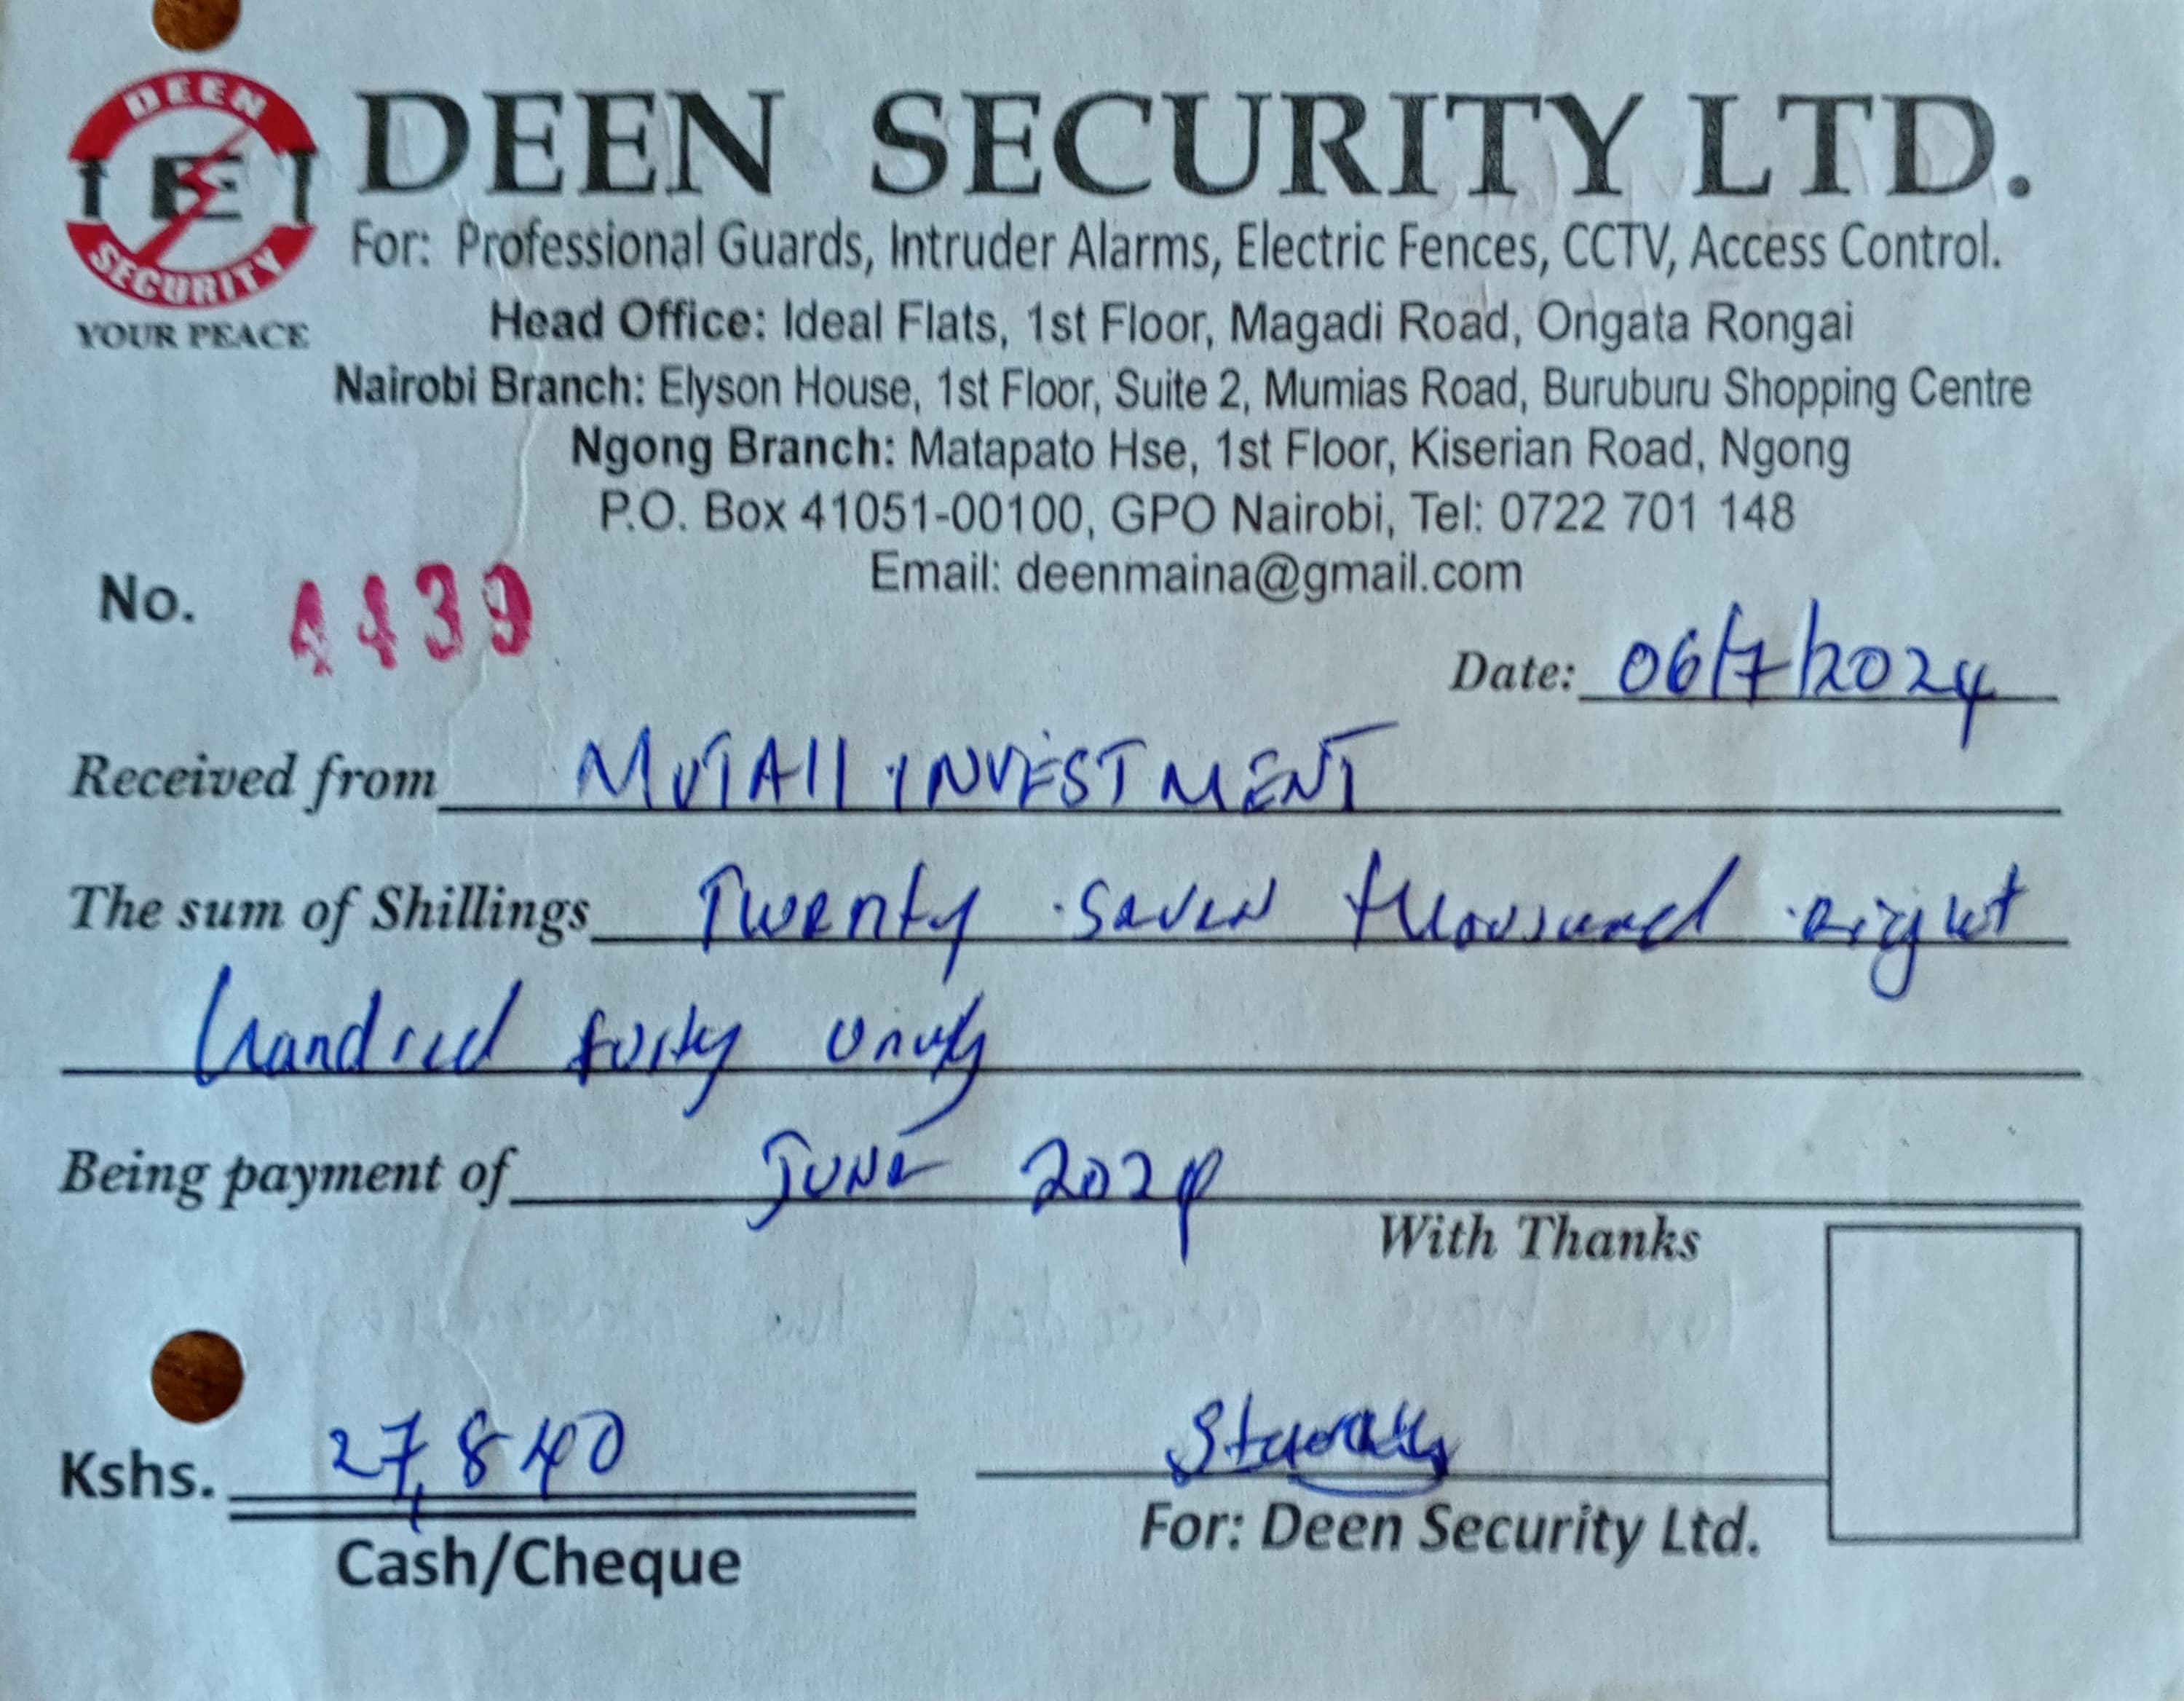 DEEN
SECURITY
YOUR PEACE
DEEN SECURITY LTD.
For: Professional Guards, Intruder Alarms, Electric Fences, CCTV, Access Control.
Head Office: Ideal Flats, 1st Floor, Magadi Road, Ongata Rongai
Nairobi Branch: Elyson House, 1st Floor, Suite 2, Mumias Road, Buruburu Shopping Centre
Ngong Branch: Matapato Hse, 1st Floor, Kiserian Road, Ngong
P.O. Box 41051-00100, GPO Nairobi, Tel: 0722 701 148
Email: deenmaina@gmail.com
No. 4439
Date: 06/7/2024
Received from MUTALL INVESTMENT
The sum of Shillings Twenty seven thousand eight
hundred forty only
Being payment of JUNE 2024
With Thanks
Kshs. 27,840
Cash/Cheque
For: Deen Security Ltd.